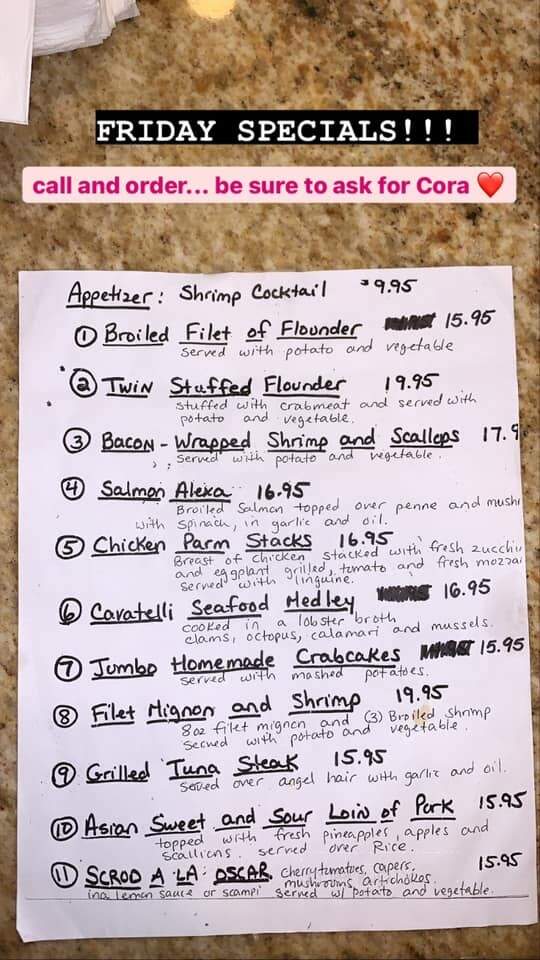 FRIDAY SPECIALS!!!
call and order... be sure to ask for Cora ❤️
Appetizer: Shrimp Cocktail $9.95
① Broiled Filet of Flounder 15.95
served with potato and vegetable
② Twin Stuffed Flounder 19.95
stuffed with crabmeat and served with
potato and vegetable.
③ Bacon-Wrapped Shrimp and Scallops 17.9
Served with potato and vegetable.
④ Salmon Alexa 16.95
Broiled Salmon topped over penne and mushr
with spinach, in garlic and oil.
⑤ Chicken Parm Stacks 16.95
Breast of chicken stacked with fresh zucchi
and eggplant grilled, tomato and fresh mozza
served with linguine.
⑥ Cavatelli Seafood Medley 16.95
cooked in a lobster broth
clams, octopus, calamari and mussels.
⑦ Jumbo Homemade Crabcakes 15.95
served with mashed potatoes.
⑧ Filet Mignon and Shrimp 19.95
8oz filet mignon and (3) Broiled Shrimp
Served with potato and vegetable.
⑨ Grilled Tuna Steak 15.95
Served over angel hair with garlic and oil.
⑩ Asian Sweet and Sour Loin of Pork 15.95
topped with fresh pineapples, apples and
scallions. served over Rice.
⑪ SCROD A LA OSCAR cherry tomatoes, capers, 15.95
mushrooms, artichokes.
in a lemon sauce or scampi served w/ potato and vegetable.